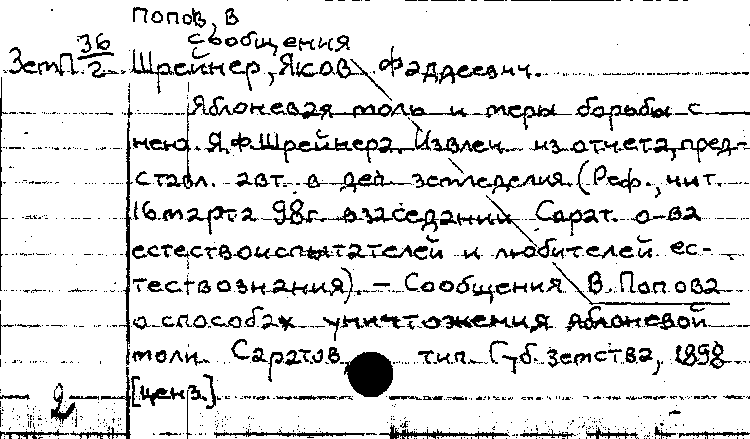 Попов, В
сообщения
ЗемП 36/2 Шрейнер, Яков Фаддеевич.
Яблоневая моль и меры борьбы с
нею Я.Ф.Шрейнера. Извлеч. из отчета, пред-
ставл. авт. в деп земледелия. (Реф., чит.
16 марта 98г. в заседании Сарат. о-ва
естествоиспытателей и любителей ес-
тествознания). – Сообщения В. Попова
о способах уничтожения яблоневой
моли. Саратов, тип. Губ. земства, 1898
[ценз.]
2